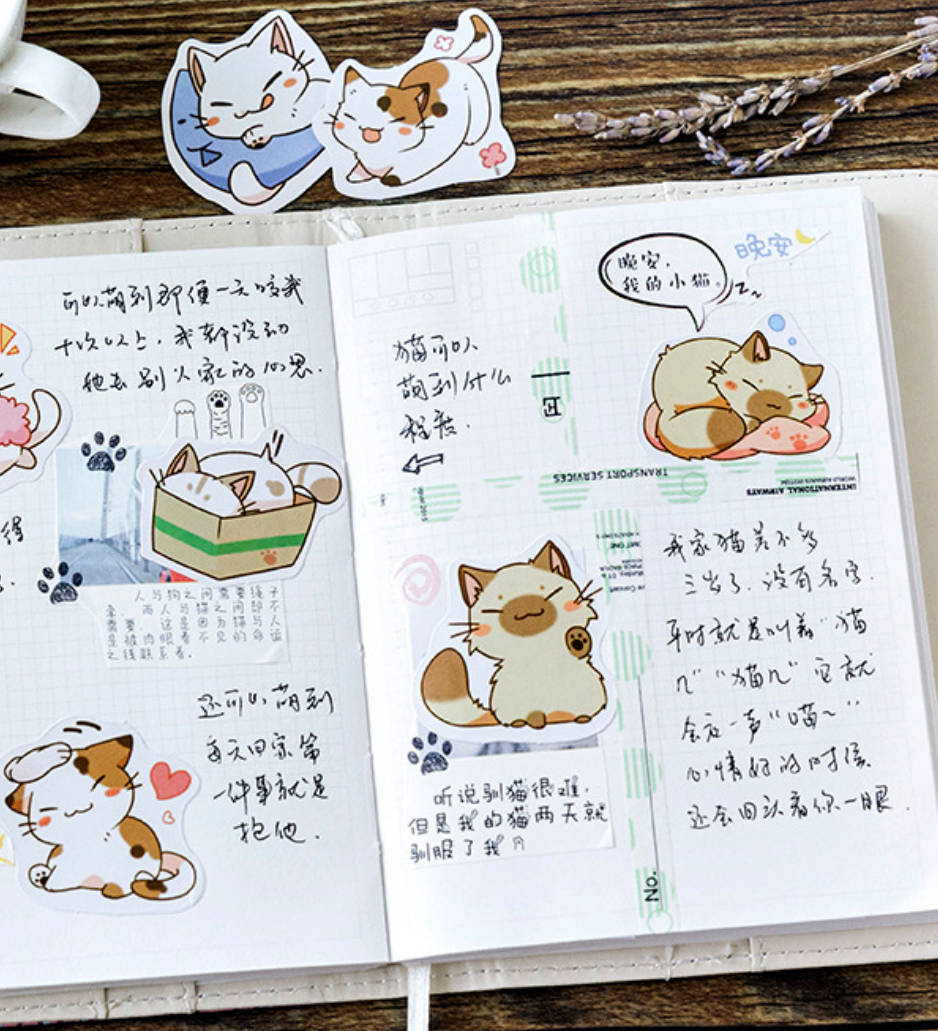 可以萌到即便一天咬我
十次以上，我都没动
他去别人家的心思．
人与狗之间需要绳子
牵，而人与猫之间却不
需要，这是因为猫与人
是被肉眼看不见的命运
之线联系着。
还可以萌到
每天回家第
一件事就是
抱他．
得
猫可以
萌到什么
程度．
晚安，
我的小猫。
晚安
Z
E
TRANSPORT SERVICES
INTERNATIONAL AIRWAYS
WORLD AIRWAYS SYSTEM
听说驯猫很难，
但是我的猫两天就
驯服了我
我家猫差不多
三岁了．没有名字．
平时就是叫着“猫
儿”“猫儿”它就
会应一声“喵～”
心情好的时候
还会回头看你一眼．
No.